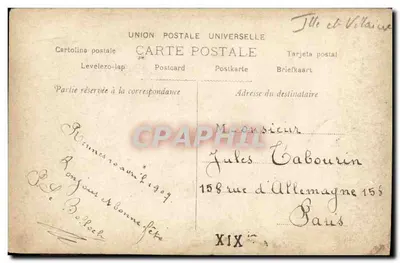 Ille et Vilaine
UNION POSTALE UNIVERSELLE
Cartolina postale CARTE POSTALE Tarjeta postal
Levelezo-lap Postcard Postkarte Briefkaart
Partie réservée à la correspondance
Adresse du destinataire
Rennes 10 avril 1909
Bonjour et bonne fête
Monsieur
Jules Tabourin
158 rue d'Allemagne 158
Paris
XIXme
CPRCARTES.COM